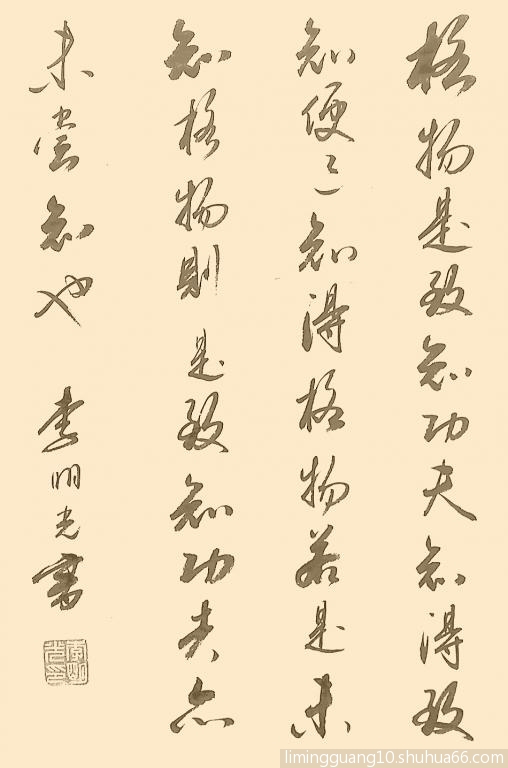 格物是致知功夫知得致
知便已知得格物若是未
知格物則是致知功夫亦
未尝知也 李明光書
李明光印
limingguang10.shuhua66.com